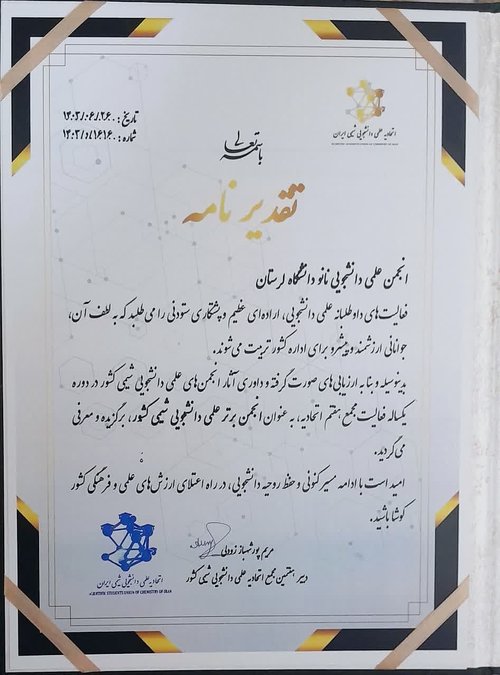 تاریخ : ۱۴۰۳/۰۶/۲۶
شماره : ۱۴۰۳/۵/۱۶۱۶
اتحادیه علمی دانشجویی شیمی ایران
SCIENTIFIC STUDENTS UNION OF CHEMISTRY OF IRAN
باسمه تعالی
تقدیرنامه
انجمن علمی دانشجویی نانو دانشگاه لرستان
فعالیت‌های داوطلبانه علمی دانشجویی، اراده‌ای عظیم و پشتکاری ستودنی را می‌طلبد که به لطف آن،
جوانانی ارزشمند و پیشرو برای اداره کشور تربیت می‌شوند.
بدینوسیله و بنا به ارزیابی‌های صورت گرفته و داوری آثار انجمن‌های علمی دانشجویی شیمی کشور در دوره
یکساله فعالیت مجمع هفتم اتحادیه، به عنوان انجمن برتر علمی دانشجویی شیمی کشور، برگزیده و معرفی
می‌گردید.
امید است با ادامه مسیر کنونی و حفظ روحیه دانشجویی، در راه اعتلای ارزش‌های علمی و فرهنگی کشور
کوشا باشید.
مریم پورشهباز زودلی
دبیر هفتمین مجمع اتحادیه علمی دانشجویی شیمی کشور
اتحادیه علمی دانشجویی شیمی ایران
SCIENTIFIC STUDENTS UNION OF CHEMISTRY OF IRAN